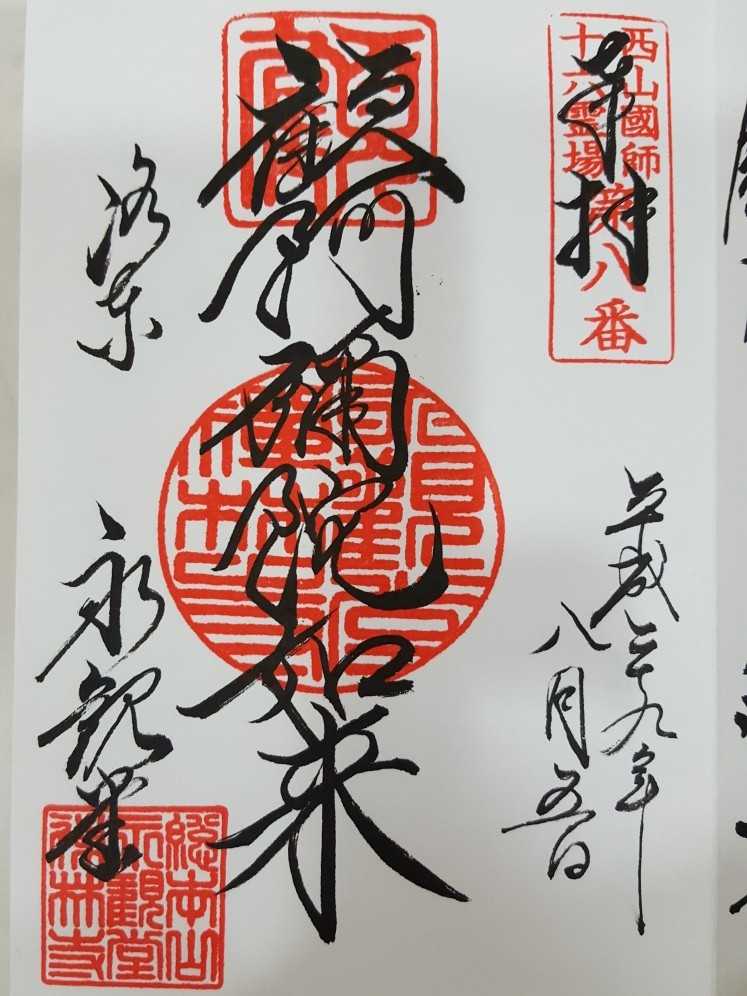 西山國師
十六霊場第八番
奉拝
平成二十九年
八月五日
顧阿彌陀如来
洛東 永観堂
総本山
永觀堂
禅林寺